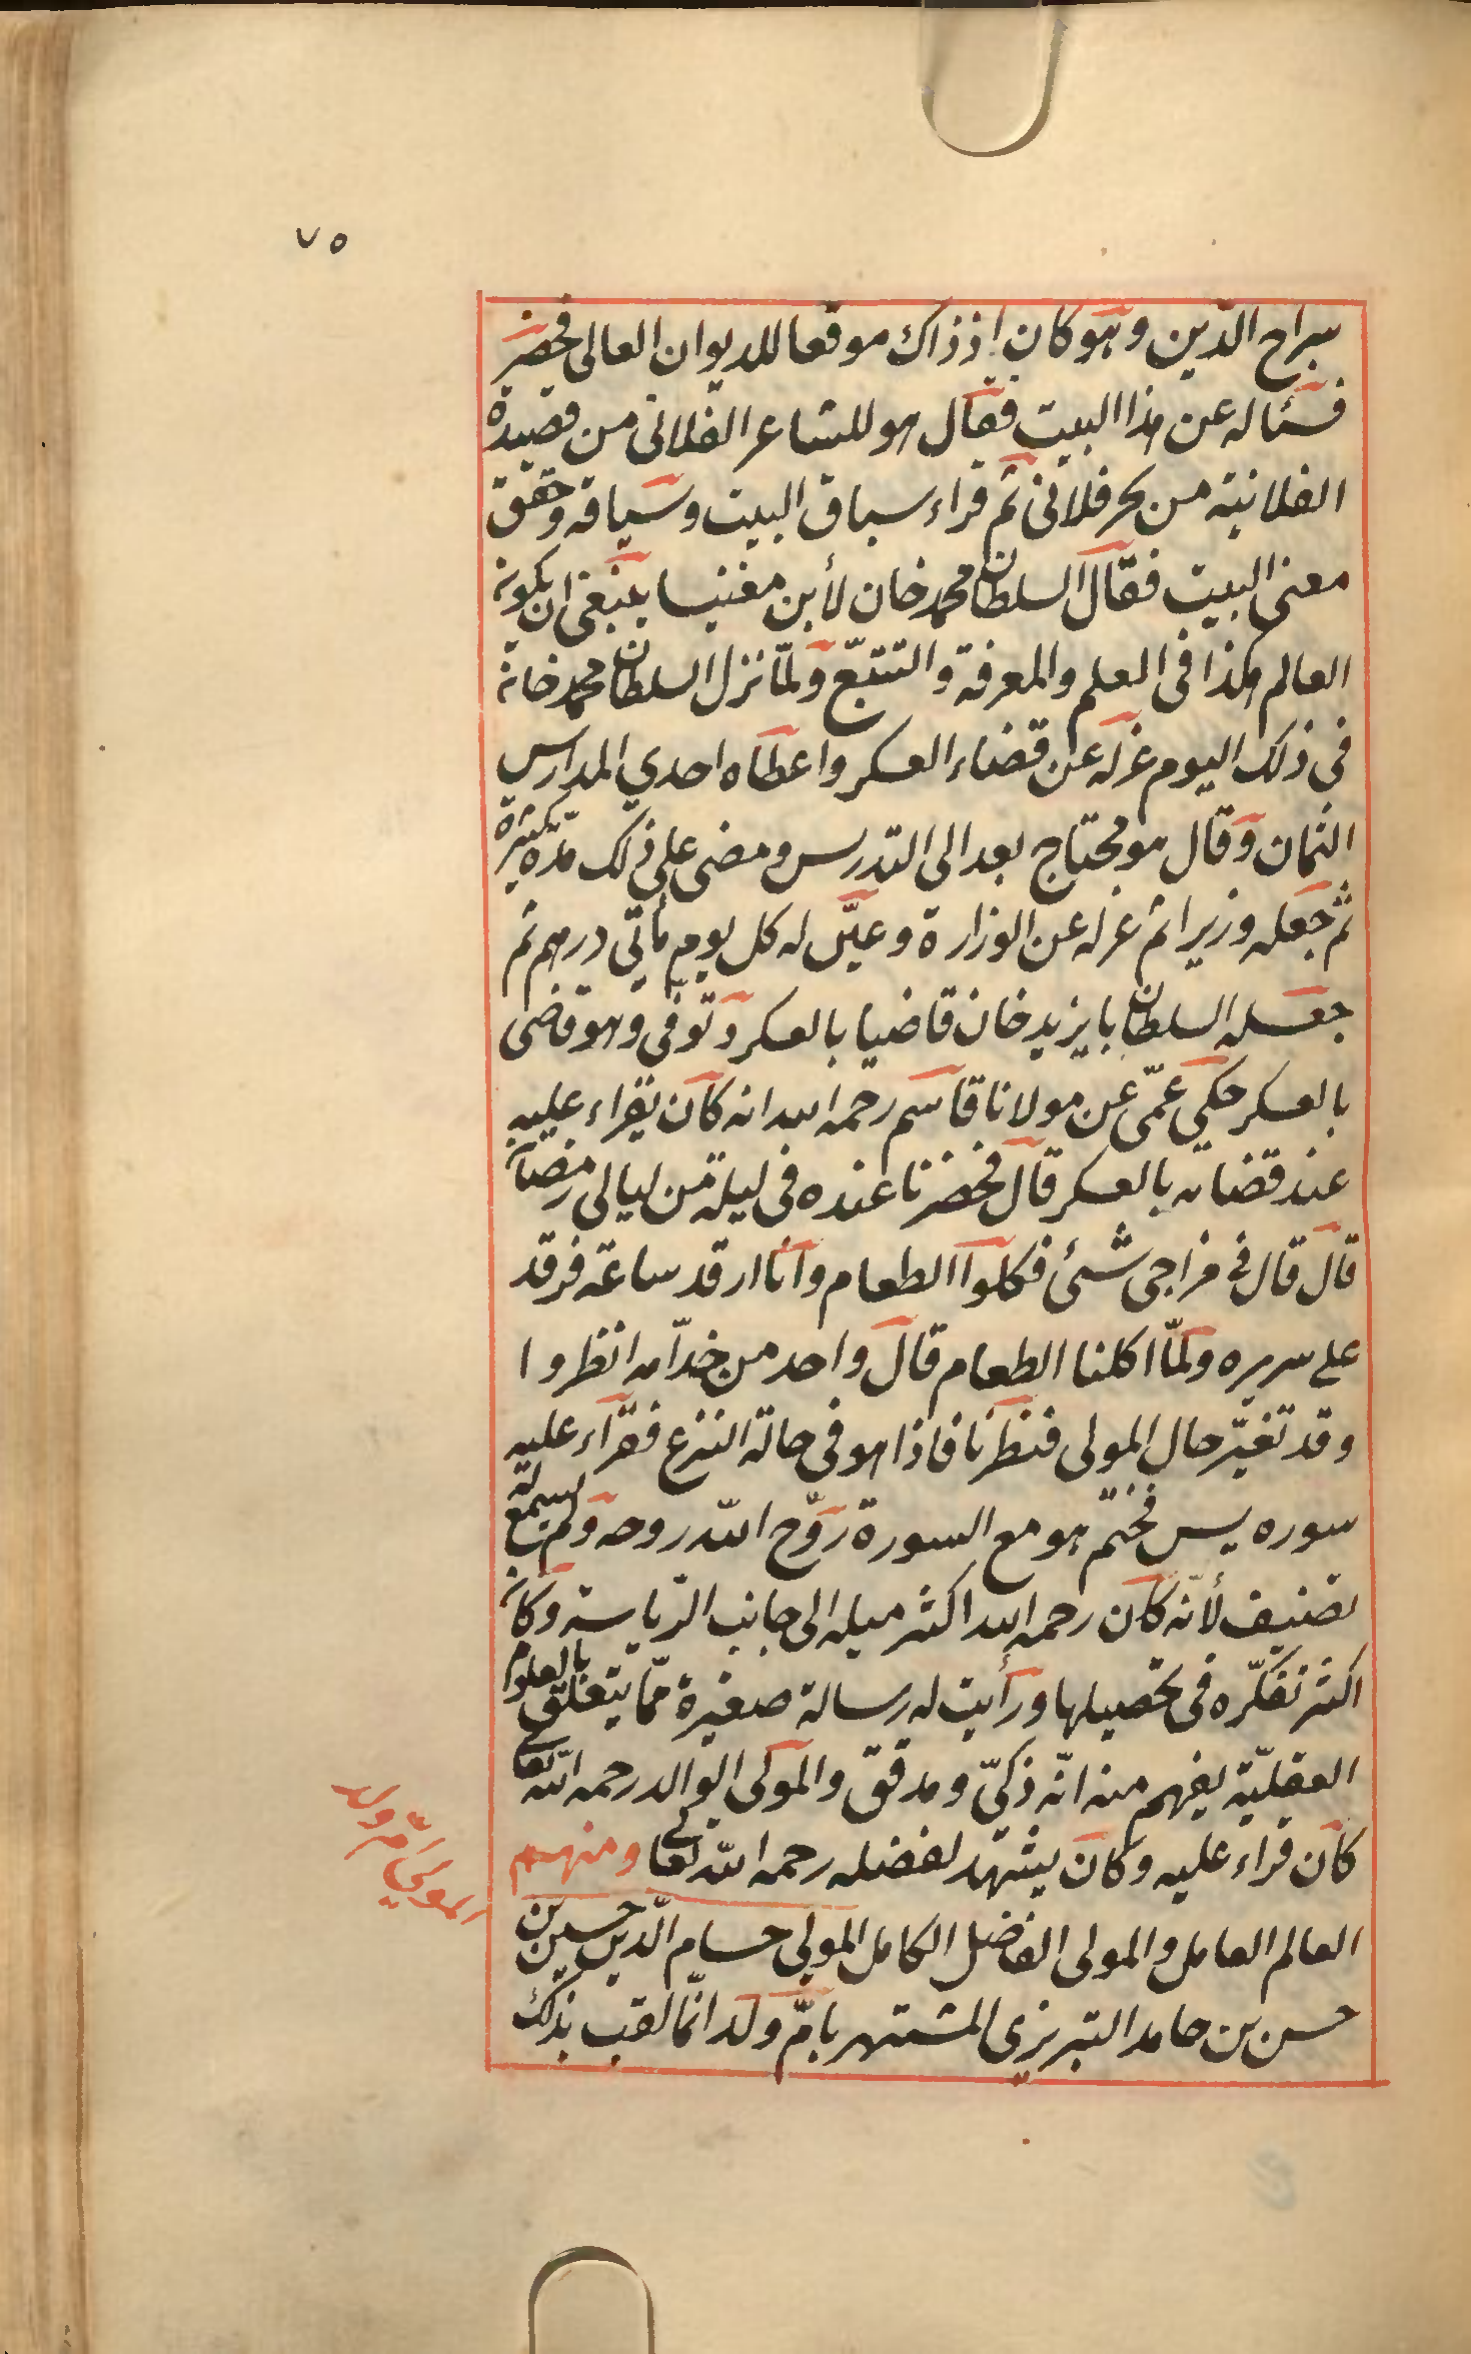 ٧٥
سراج الدّين وهو كان اذ ذاك موقعا للديوان العالى فحضر
فسئاله عن هذا البيت فقال هو للشاعر الفلانى من قصيدة
الفلانية من بحر فلانى ثم قراء سباق البيت وسياقه وحقق
معنى البيت فقال السلطان محمد خان لأبن مغنيسا ينبغى ان يكون
العالم هكذا فى العلم والمعرفة والتتبّع ولمّا نزل السلطان محمد خان
فى ذلك اليوم عزله عن قضاء العسكر واعطاه احدي المدارس
الثمان وقال هو محتاج بعد الى التدرس ومضى على ذلك مدّة كثيرة
ثم جعله وزيرا ثم عزله عن الوزارة وعيّن له كل يوم مأتى درهم ثم
جعله السلطان بايزيد خان قاضيا بالعسكر وتوفى وهو قاضى
بالعسكر حكى عمّى عن مولانا قاسم رحمه الله انه كان يقراء عليه
عند قضائه بالعسكر قال فحضرنا عنده فى ليلة من ليالى رمضان
قال قال فى مزاجى شئ فكلوا الطعام وانا ارقد ساعة فرقد
على سريره ولمّا اكلنا الطعام قال واحد من خدّامه انظروا
وقد تغيّر حال المولى فنظرنا فاذا هو فى حالة النزع فقراء عليه
سوره يس فختم هو مع السورة روّح الله روحه ولم يسمع له
تصنيف لأنّه كان رحمه الله اكثر ميله الى جانب الرّياسة وكان
اكثر تفكّره فى تحصيلها ورأيت له رسالة صغيرة ممّا يتعلّق بالعلوم
العقليّة يفهم منه انّه ذكىّ ومدقق والمولى الوالد رحمه الله تعالى
كان قراء عليه وكان يشهد لفضله رحمه الله تعالى ومنهم
العالم العامل والمولى الفاضل الكامل المولى حسام الدّين حسين بن
حسن بن حامد التبريزى المشتهر بامّ ولد انّما لقب بذلك
المولى امّ ولد